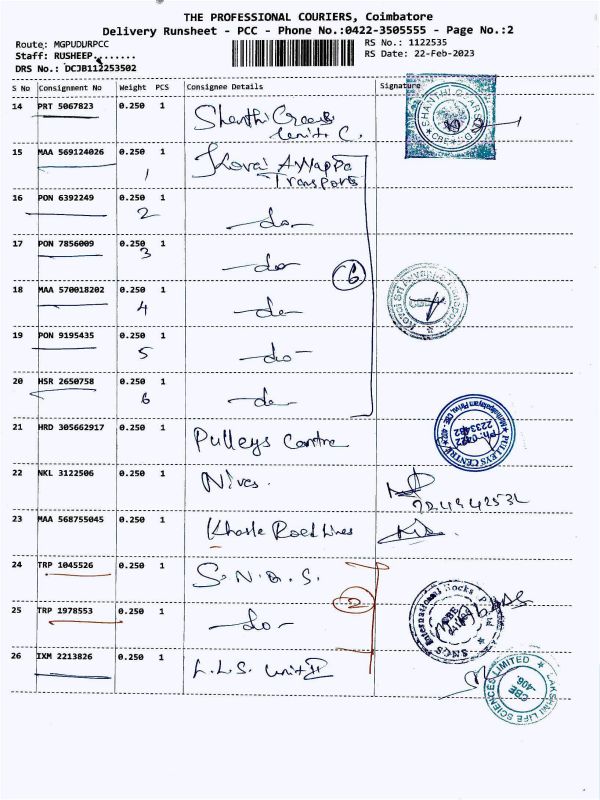 THE PROFESSIONAL COURIERS, Coimbatore
Delivery Runsheet - PCC - Phone No.:0422-3505555 - Page No.:2
Route: MGPUDURPCC
RS No.: 1122535
Staff: RUSHEEP........
RS Date: 22-Feb-2023
DRS No.: DCJB112253502
S No Consignment No Weight PCS Consignee Details Signature
14 PRT 5067823 0.250 1 Shanthi Gears
Unit C.
SHANTHI GEARS
CBE
15 MAA 569124026 0.250 1 Kovai Ayyappa
1 Transports
16 PON 6392249 0.250 1
2 -do-
17 PON 7856009 0.250 1
3 -do-
6
18 MAA 570018202 0.250 1
4 -do-
Kovai Sri Ayyappa Transport
19 PON 9195435 0.250 1
5 -do-
20 HSR 2650758 0.250 1
6 -do-
21 HRD 305662917 0.250 1 Pulleys Centre
PULLEYS CENTRE
Ph: 0422
2233482
22 NKL 3122506 0.250 1 Nives.
23 MAA 568755045 0.250 1 Kharle Road Lines
24 TRP 1045526 0.250 1 S.N.Q.S.
2
25 TRP 1978553 0.250 1 -do-
SNQS International Socks P Ltd
CBE
26 IXM 2213826 0.250 1 L.L.S. Unit II
LAKSHMI LIFE SCIENCES LIMITED
CBE
-406.